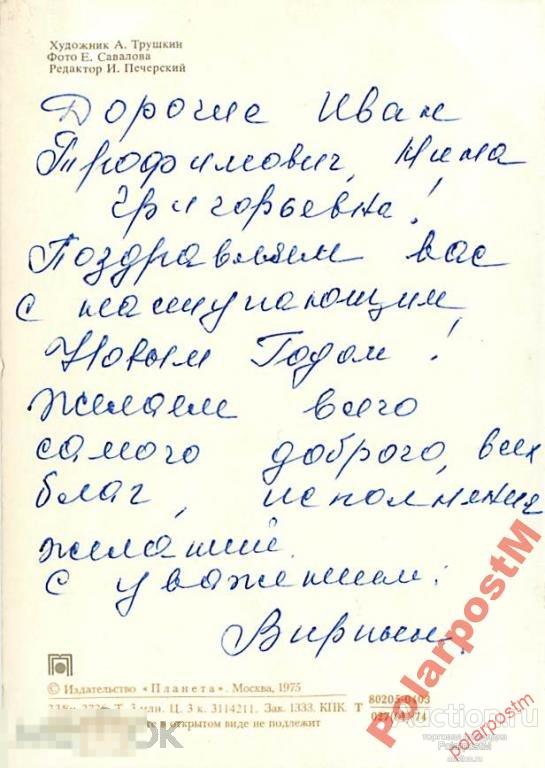 Художник А. Трушкин
Фото Е. Савалова
Редактор И. Печерский
Дорогие Иван
Трофимович, Нина
Григорьевна!
Поздравляем вас
с наступающим
Новым Годом!
Желаем всего
самого доброго, всех
благ, исполнения
желаний.
С уважением:
© Издательство «Планета». Москва, 1975
80205-0403
Т. 3 млн. Ц. 3 к. 3114211. Зак. 1333. КПК. Т
в открытом виде не подлежит
PolarpostM
polarpostm